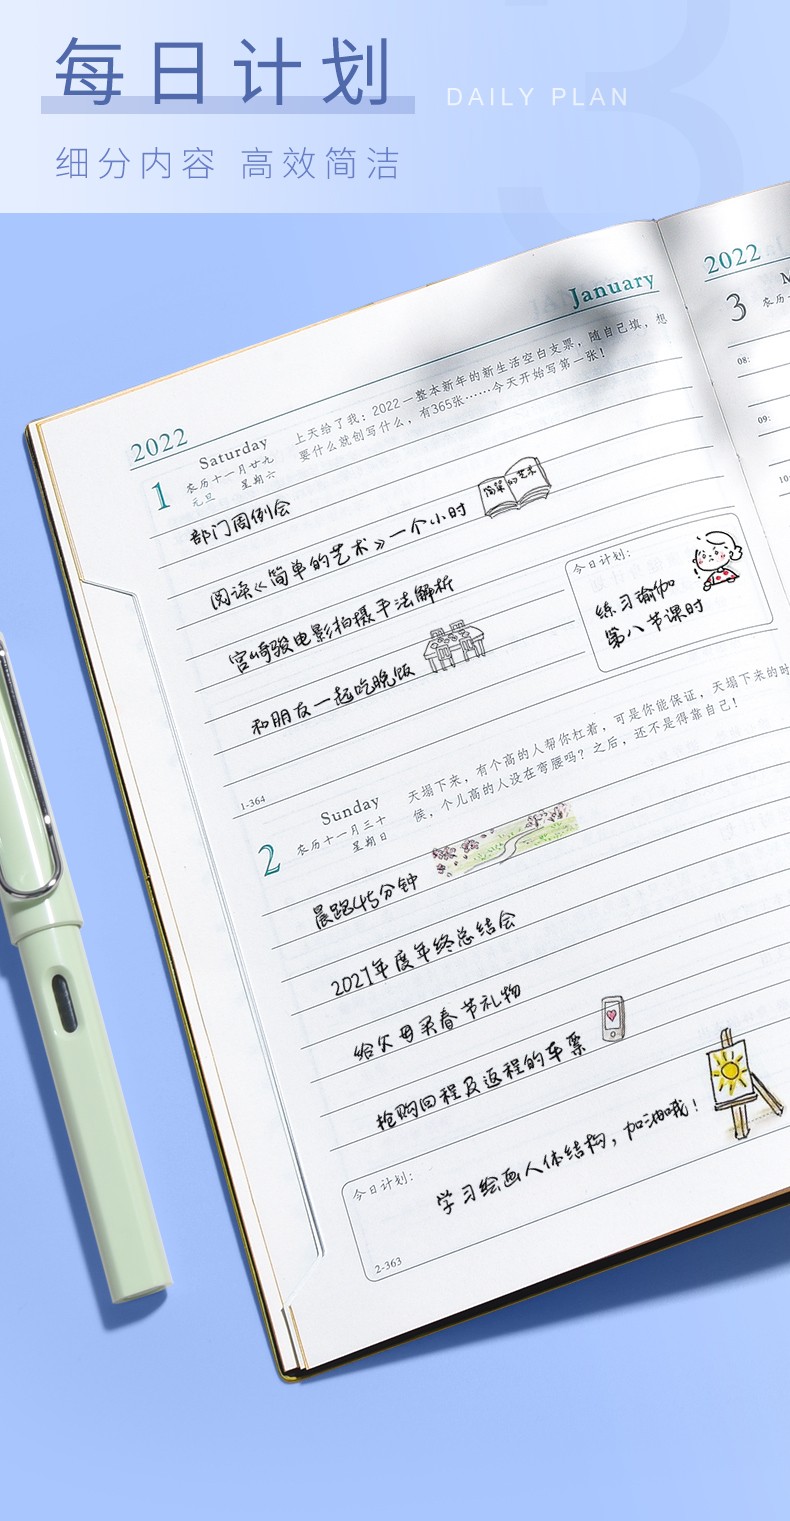 每日计划
DAILY PLAN
细分内容 高效简洁
2022
January
1
Saturday
农历十一月廿九
元旦 星期六
上天给了我：2022一整本新年的新生活空白支票，随自己填，想
要什么就创写什么，有365张……今天开始写第一张！
部门周例会
阅读《简单的艺术》一个小时
简单的艺术
宫崎骏电影拍摄手法解析
和朋友一起吃晚饭
今日计划：
练习瑜伽
第八节课时
1-364
2
Sunday
农历十一月三十
星期日
天塌下来，有个高的人帮你杠着，可是你能保证，天塌下来的时
候，个儿高的人没在弯腰吗？之后，还不是得靠自己！
晨跑45分钟
2021年度年终总结会
给父母买春节礼物
抢购回程及返程的车票
今日计划：
学习绘画人体结构，加油哦！
2-363
2022
3
农历
08:
09:
10